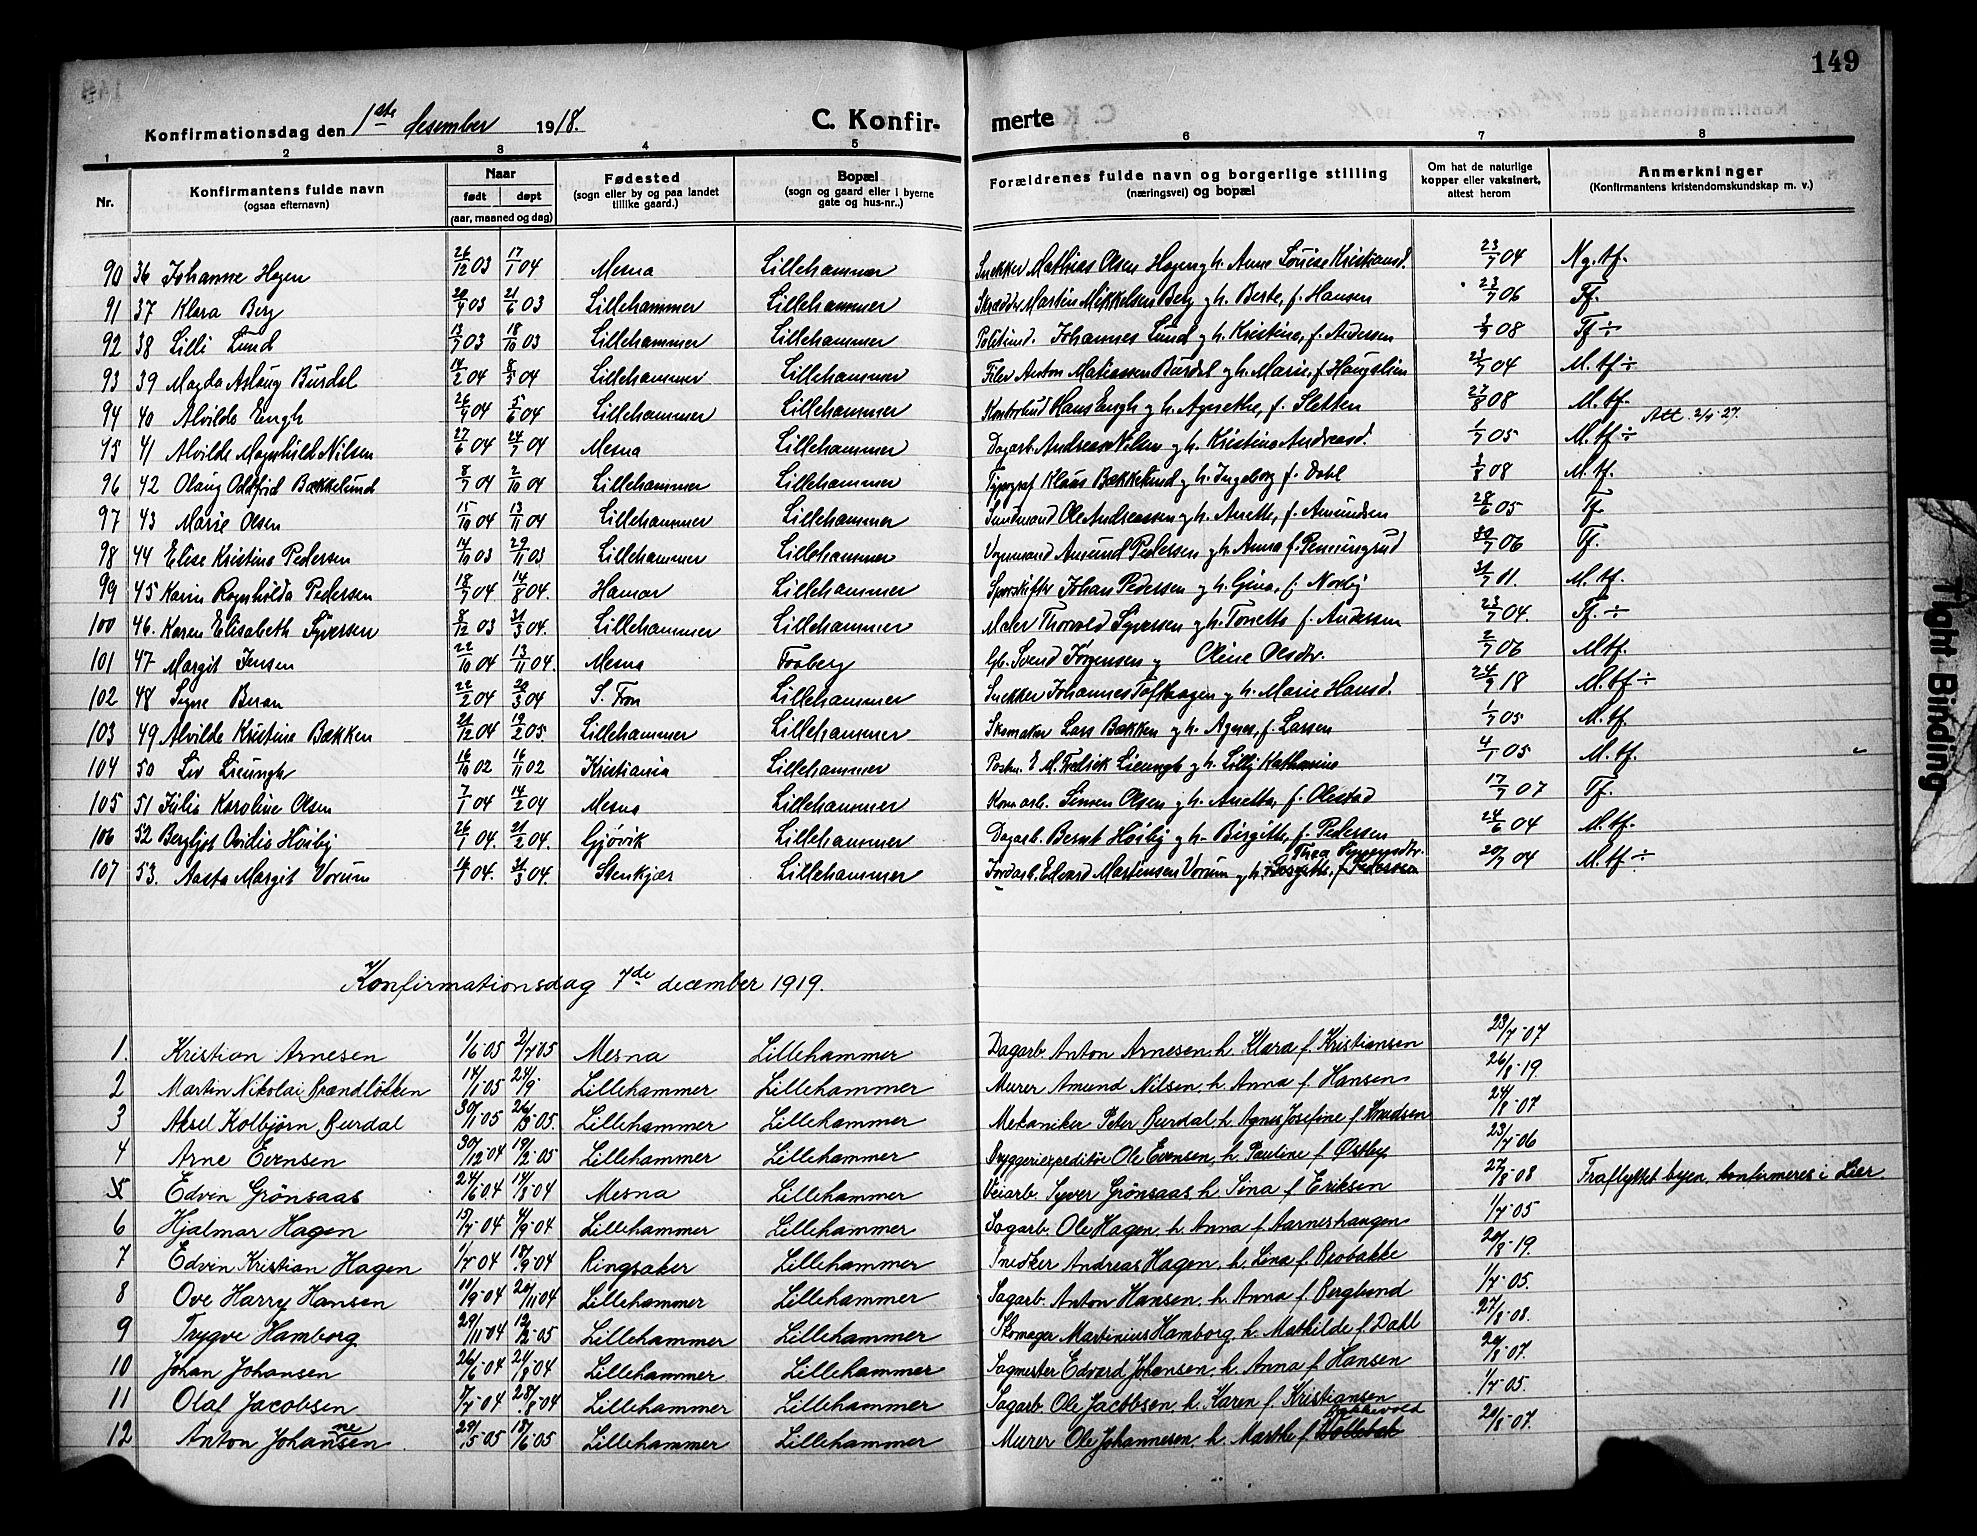 149
Konfirmationsdag den 1ste desember 1918.
C. Konfirmerte
1 2 3 4 5 6 7 8
Nr.
Konfirmantens fulde navn
(ogsaa efternavn)
Naar
født døpt
(aar, maaned og dag)
Fødested
(sogn eller by og paa landet
tillike gaard.)
Bopæl
(sogn og gaard eller i byerne
gate og hus-nr..)
Forældrenes fulde navn og borgerlige stilling
(næringsvei) og bopæl
Om hat de naturlige
kopper eller vaksinert,
attest herom
Anmerkninger
(Konfirmantens kristendomskundskap m. v.)
90 36 Johanne Hagen 26/12 03 17/1 04 Mesna Lillehammer Snekker Mathias Olsen Hagen g h. Anne Louise Kristiansd. 23/7 04 Ng. tf.
91 37 Klara Berg 20/4 03 21/6 03 Lillehammer Lillehammer Martin Mikkelsen Berg g h. Berte, f. Hansen 23/7 06 Tf.
92 38 Lilli Lund 13/7 03 18/10 03 Lillehammer Lillehammer Johannes Lund g h. Kristine, f. Andersen 08 Tf ÷
93 39 Magda Aslaug Burdal 14/2 04 04 Lillehammer Lillehammer Filer Anton Matiassen Burdal g h. Marie, f. Haugslien 23/7 04 M. tf ÷
94 40 Alvilde Engh 26/4 04 5/6 04 Lillehammer Lillehammer Hans Engh g h. Agnethe, f. Sletten 27/8 08 M. tf. Att. 2/4 27.
95 41 Alvilde Magnhild Nilsen 27/6 04 24/7 04 Mesna Lillehammer Dagarb. Andreas Nilsen g h. Kristine Andreasd. 1/7 05 M. tf ÷
96 42 Olaug Oddfrid Bækkelund 8/7 04 2/10 04 Lillehammer Lillehammer Typograf Klaus Bækkelund g h. Ingeborg f. Dahl 08 M. tf.
97 43 Marie Olsen 15/10 04 13/11 04 Lillehammer Lillehammer Ole Andreassen g h. Anette, f. Amundsen 28/6 05 Tf.
98 44 Elise Kristine Pedersen 14/10 03 29/11 03 Lillehammer Lillehammer Vognmand Amund Pedersen g h. Anna f. Penningrud 30/7 06 Tf.
99 45 Karin Ragnhilda Pedersen 18/7 04 14/8 04. Hamar Lillehammer Sporskifter Johan Pedersen g h. Gina, f. Norby 31/7 11. M. tf.
100 46. Karen Elisabeth Syversen 8/12 03 31/3 04. Lillehammer Lillehammer Maler Thorvald Syversen g h. Tonette f. Andersen 23/7 04. Tf. ÷
101 47 Margit Jensen 22/10 04 13/11 04. Mesna Faaberg Gb. Svend Jørgensen g Oline Olsdtr. 2/7 06 Mtf.
102 48 Signe Beran 22/2 04 20/3 04 S. Fron Lillehammer Snekker Johannes Tofthagen g h. Marie Hansd. 24/9 18 M. tf ÷
103 49 Alvilde Kristine Bækken 21/12 04 19/2 05 Lillehammer Lillehammer Skomaker Lars Bækken g h. Agnes, f. Larsen 1/7 05 M. tf.
104 50 Liv Lieungh 16/10 02 16/11 02 Kristiania Lillehammer Fredrik Lieungh g h. Lilly Katharine 4/1 05 M. tf.
105 51 Julie Karoline Olsen 7/1 04 14/2 04 Mesna Lillehammer Kom.arb. Simen Olsen g h. Anette, f. Olestad 17/7 07 Tf.
106 52 Bergljot Ovidia Høiby 26/1 04. 21/2 04. Gjøvik Lillehammer Dagarb. Bernt Høiby g h. Birgitte, f. Pedersen 24/6 04 M. tf.
107 53. Aasta Margit Vorum 04. 31/3 04. Stenkjær Lillehammer Jordarb. Edvard Martinsen Vorum g h. Birgitte, f. Pedersen Thea 20/7 04 M. tf ÷
Konfirmationsdag 7de december 1919.
1. Kristian Arnesen 1/6 05 2/7 05 Mesna Lillehammer Dagarb. Anton Arnesen. h. Klara f. Kristiansen 23/7-07
2 Martin Nikolai Brændløkken 14/1 05 24/9 Lillehammer Lillehammer Murer Amund Nilsen. h. Anna f. Hansen 26/8-19.
3 Aksel Kolbjørn Burdal 30/1 05 26/3 05. Lillehammer Lillehammer Mekaniker Peter Burdal. h. Agnes Josefine f. Knudsen 24/8-07
4 Arne Evensen 30/12-04 19/2-05 Lillehammer Lillehammer Bryggeriexpeditør Ole Evensen. h. Pauline f. Østby 23/7-06
5 Edvin Grönsaas 24/6 04 14/8 04 Mesna Lillehammer Veiarb. Syver Grönsaas h. Sina f. Eriksen 27/8-08 Fraflyttet byen, konfirmeres i Lier.
6 Hjalmar Hagen 15/7-04 4/9-04 Lillehammer Lillehammer Sagarb. Ole Hagen. h. Anna f. Aarneshaugen 1/7-05
7 Edvin Kristian Hagen 1/7-04 18/9-04 Ringsaker Lillehammer Snedker Andreas Hagen. h. Lina f. Brobakke 20/8-19.
8 Ove Harry Hansen 10/9-04 20/11 04 Lillehammer Lillehammer Sagarb. Anton Hansen. h. Anna f. Berglund 1/7-05.
9 Trygve Hamborg 29/11-04 12/2-05 Lillehammer Lillehammer Skomager Martinius Hamborg. h. Mathilde f. Dahl 27/8-08.
10 Johan Johansen 26/6-04 24/8 04 Lillehammer Lillehammer Sagmester Edvard Johansen. h. Anna f. Hansen 20/8-07.
11 Olaf Jacobsen 7/7-04 28/8-04 Lillehammer Lillehammer Sagarb. Ole Jacobsen h. Karen f. Kristiansen 1/7-05.
12 Anton Johannesen 29/5-05 18/6-05 Lillehammer Lillehammer Murer Ole Johannesen. h. Marthe f. Bakkevold 20/8-07.
Tight Binding